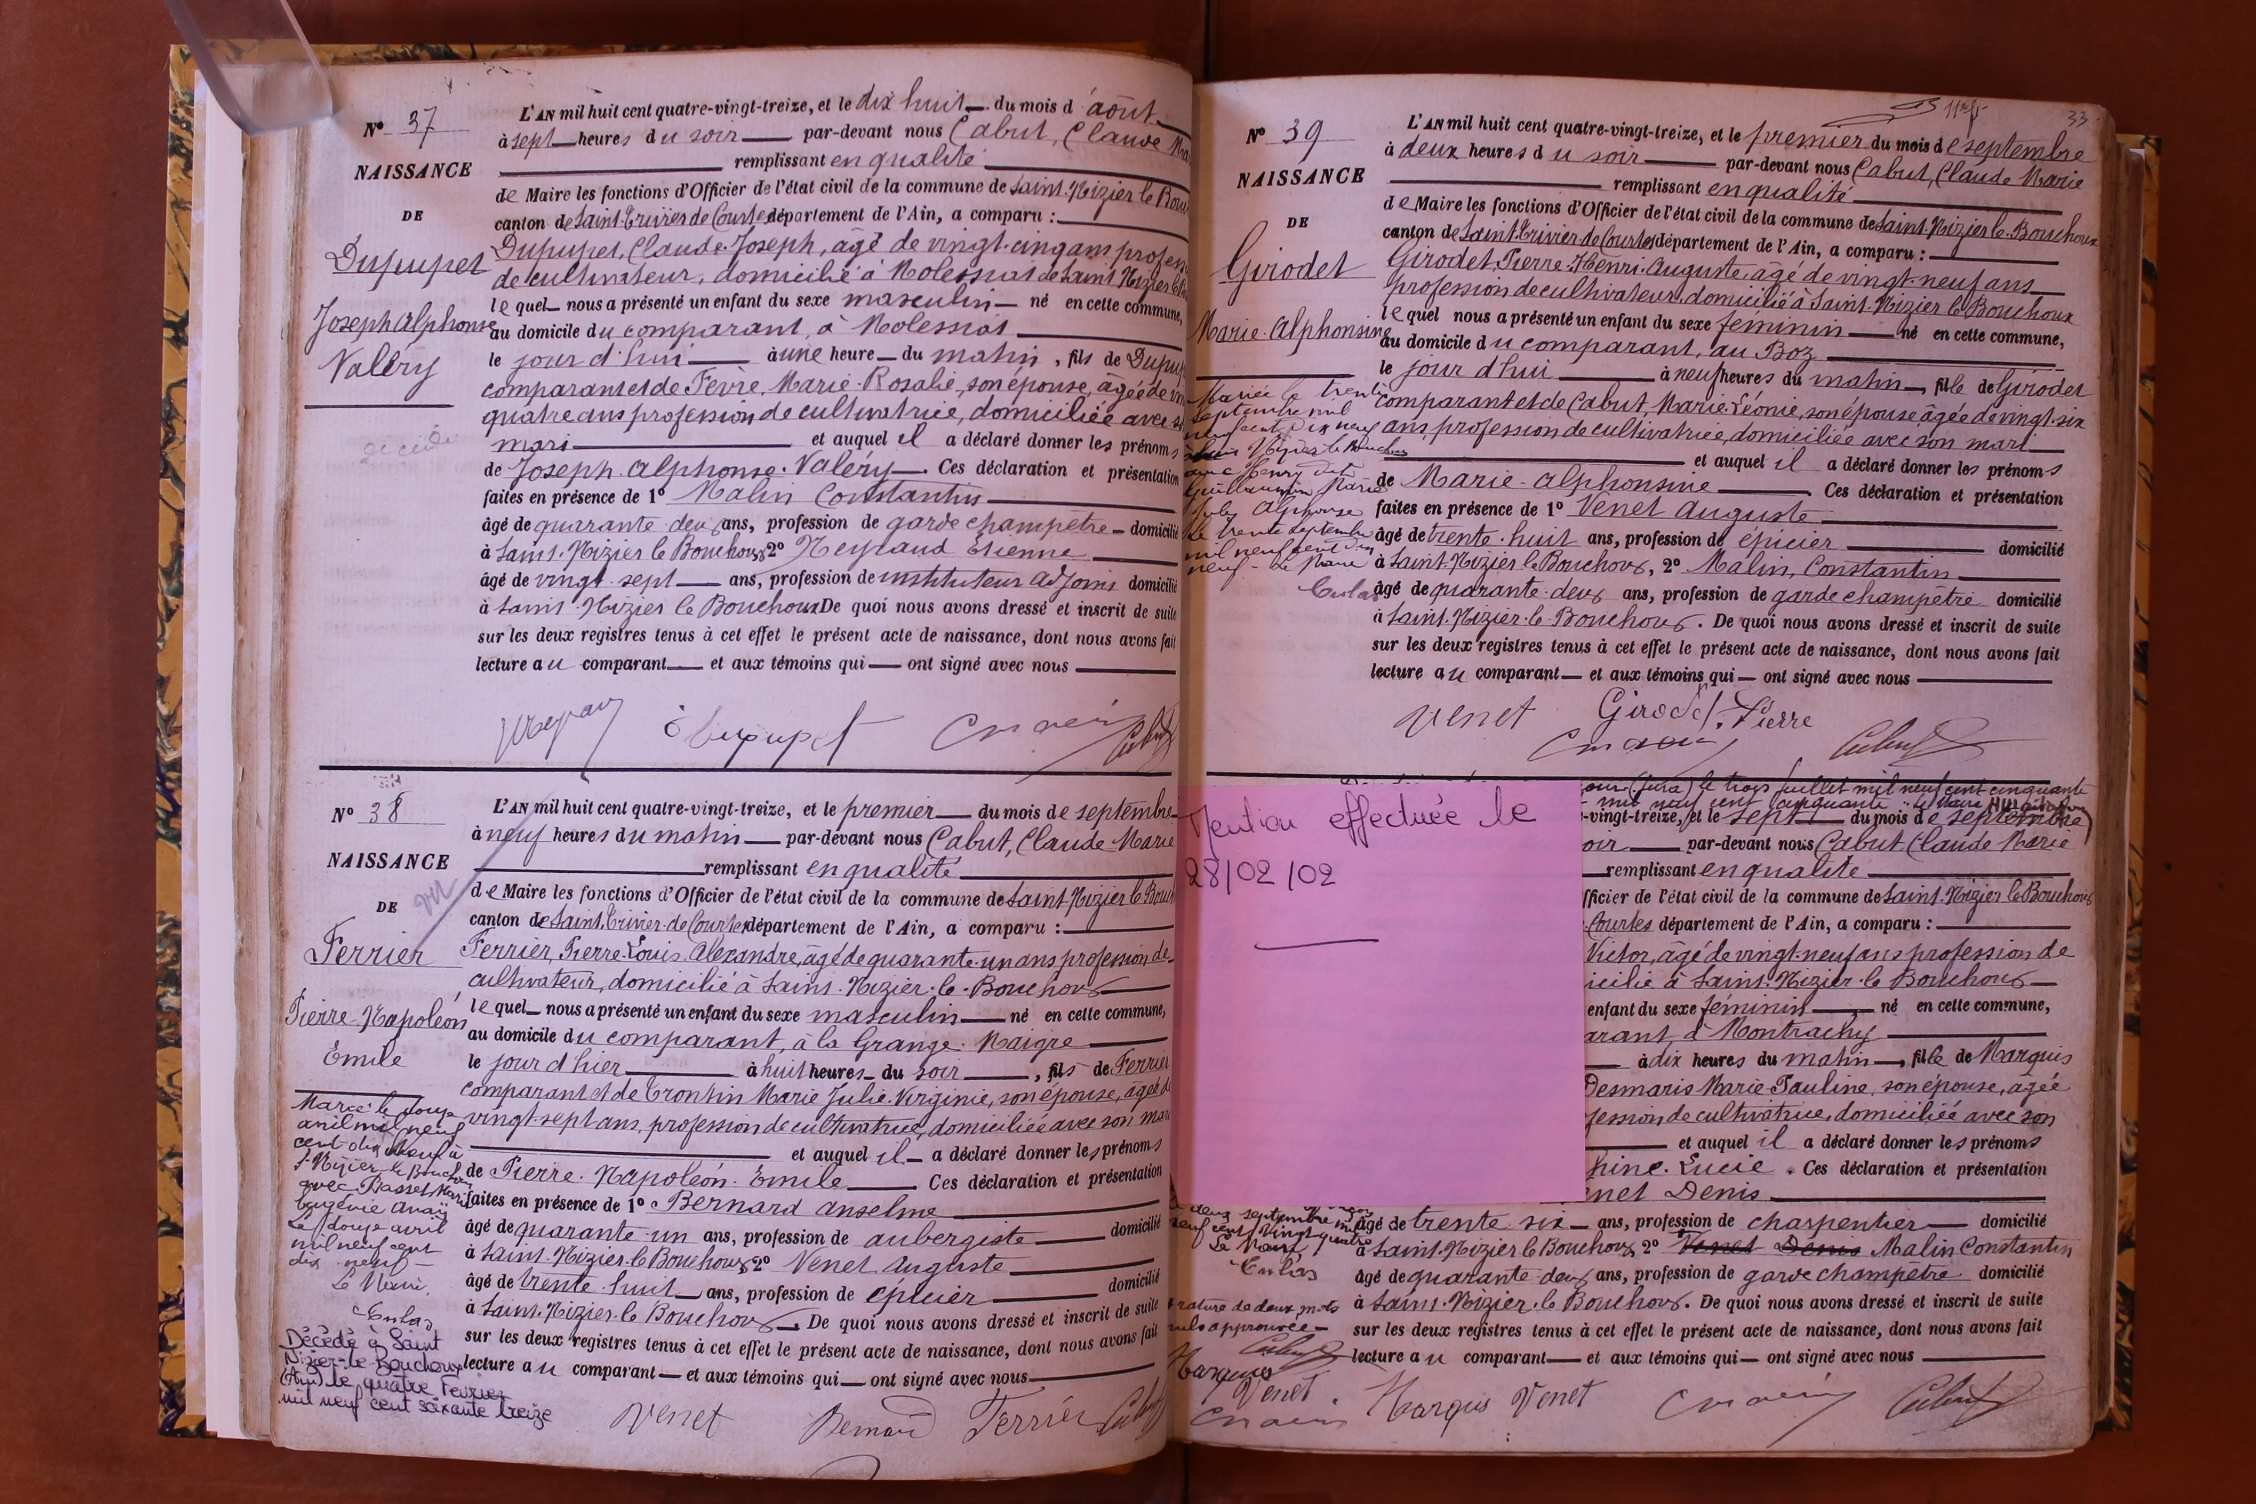 N° 37
NAISSANCE
DE
Dupupet
Joseph Alphonse
Valéry
décédé
L'AN mil huit cent quatre-vingt-treize, et le dix huit du mois d'août
à sept heures du soir par-devant nous Cabut, Claude
remplissant en qualité
de Maire les fonctions d'Officier de l'état civil de la commune de Saint-Nizier le
canton de Saint-Trivier de Courtes département de l'Ain, a comparu :
Dupupet, Claude-Joseph, âgé de vingt-cinq ans
de cultivateur, domicilié à Molessiat de Saint Nizier
lequel nous a présenté un enfant du sexe masculin né en cette commune,
au domicile du comparant, à Molessiat
le jour d'hui à une heure du matin, fils de
comparant et de Fèvre, Marie-Rosalie, son épouse, âgée de
quatre ans profession de cultivatrice, domiciliée avec
mari et auquel il a déclaré donner les prénoms
de Joseph Alphonse Valéry. Ces déclaration et présentation
faites en présence de 1° Malin Constantin
âgé de quarante deux ans, profession de garde champêtre domicilié
à Saint-Nizier le Bouchoux 2° Neyraud Etienne
âgé de vingt-sept ans, profession de instituteur adjoint domicilié
à Saint-Nizier le Bouchoux De quoi nous avons dressé et inscrit de suite
sur les deux registres tenus à cet effet le présent acte de naissance, dont nous avons fait
lecture au comparant et aux témoins qui ont signé avec nous
Dupupet
N° 38
NAISSANCE
DE
Ferrier
Pierre-Napoléon
Émile
Marié le douze
avril mil neuf
cent dix neuf à
St-Nizier le Bouchoux
avec Basset Marie
Eugénie Anaïs
Le douze avril
mil neuf cent
dix neuf
Le Maire,
Décédé à Saint
Nizier-le-Bouchoux
(Ain) le quatre Février
mil neuf cent soixante treize
L'AN mil huit cent quatre-vingt-treize, et le premier du mois de septembre
à neuf heures du matin par-devant nous Cabut, Claude Marie
remplissant en qualité
de Maire les fonctions d'Officier de l'état civil de la commune de Saint-Nizier le
canton de Saint-Trivier-de Courtes département de l'Ain, a comparu :
Ferrier, Pierre-Louis Alexandre, âgé de quarante-un ans profession de
cultivateur, domicilié à Saint-Nizier-le-Bouchoux
lequel nous a présenté un enfant du sexe masculin né en cette commune,
au domicile du comparant, à la Grange Maigre
le jour d'hier à huit heures du soir, fils de Ferrier
comparant et de Trontin Marie Julie Virginie, son épouse, âgée de
vingt-sept ans, profession de cultivatrice, domiciliée avec son mari
et auquel il a déclaré donner les prénoms
de Pierre-Napoléon-Émile Ces déclaration et présentation
faites en présence de 1° Bernard Anselme
âgé de quarante-un ans, profession de aubergiste domicilié
à Saint-Nizier le Bouchoux 2° Venet Auguste
âgé de trente-huit ans, profession de épicier domicilié
à Saint-Nizier-le Bouchoux. De quoi nous avons dressé et inscrit de suite
sur les deux registres tenus à cet effet le présent acte de naissance, dont nous avons fait
lecture au comparant et aux témoins qui ont signé avec nous
Venet Bernard Ferrier Cabut
33
N° 39
NAISSANCE
DE
Girodet
Marie-Alphonsine
Mariée le trente
septembre mil
neuf cent dix neuf
à St Nizier le Bouchoux
avec Henry dit
Guillaumin Marie
Jules Alphonse
Le trente septembre
mil neuf cent dix
neuf - Le Maire
L'AN mil huit cent quatre-vingt-treize, et le premier du mois de septembre
à deux heures du soir par-devant nous Cabut, Claude Marie
remplissant en qualité
de Maire les fonctions d'Officier de l'état civil de la commune de Saint-Nizier le Bouchoux
canton de Saint-Trivier de Courtes département de l'Ain, a comparu :
Girodet, Pierre-Henri-Auguste, âgé de vingt-neuf ans
profession de cultivateur, domicilié à Saint-Nizier le Bouchoux
lequel nous a présenté un enfant du sexe féminin né en cette commune,
au domicile du comparant, au Boz
le jour d'hui à neuf heures du matin, fille de Girodet
comparant et de Cabut, Marie-Léonie, son épouse âgée de vingt-six
ans, profession de cultivatrice, domiciliée avec son mari
et auquel il a déclaré donner les prénoms
de Marie-Alphonsine Ces déclaration et présentation
faites en présence de 1° Venet Auguste
âgé de trente-huit ans, profession de épicier domicilié
à Saint-Nizier le Bouchoux, 2° Malin, Constantin
âgé de quarante-deux ans, profession de garde champêtre domicilié
à Saint-Nizier-le-Bouchoux. De quoi nous avons dressé et inscrit de suite
sur les deux registres tenus à cet effet le présent acte de naissance, dont nous avons fait
lecture au comparant et aux témoins qui ont signé avec nous
Venet Girodet Pierre
Cabut
Mention effectuée le
28/02/02
(Jura) le trois juillet mil neuf cent cinquante
-vingt-treize, et le sept du mois de septembre
oir par-devant nous Cabut Claude Marie
remplissant en qualité
fficier de l'état civil de la commune de Saint-Nizier le Bouchoux
Courtes département de l'Ain, a comparu :
Victor, âgé de vingt-neuf ans profession de
icilié à Saint-Nizier-le Bouchoux
enfant du sexe féminin né en cette commune,
arant, à Montrachy
à dix heures du matin, fille de Marquis
Desmaris Marie-Pauline, son épouse, âgée
fession de cultivatrice, domiciliée avec son
et auquel il a déclaré donner les prénoms
hine-Lucie. Ces déclaration et présentation
enet Denis
deux septembre mil
neuf cent vingt quatre
Le Maire
rature de deux mots
nuls approuvée
Cabut
Marquis
Venet
âgé de trente six ans, profession de charpentier domicilié
à Saint-Nizier le Bouchoux 2° Venet Denis Malin Constantin
âgé de quarante deux ans, profession de garde champêtre domicilié
à Saint-Nizier-le Bouchoux. De quoi nous avons dressé et inscrit de suite
sur les deux registres tenus à cet effet le présent acte de naissance, dont nous avons fait
lecture au comparant et aux témoins qui ont signé avec nous
Marquis Venet Cabut